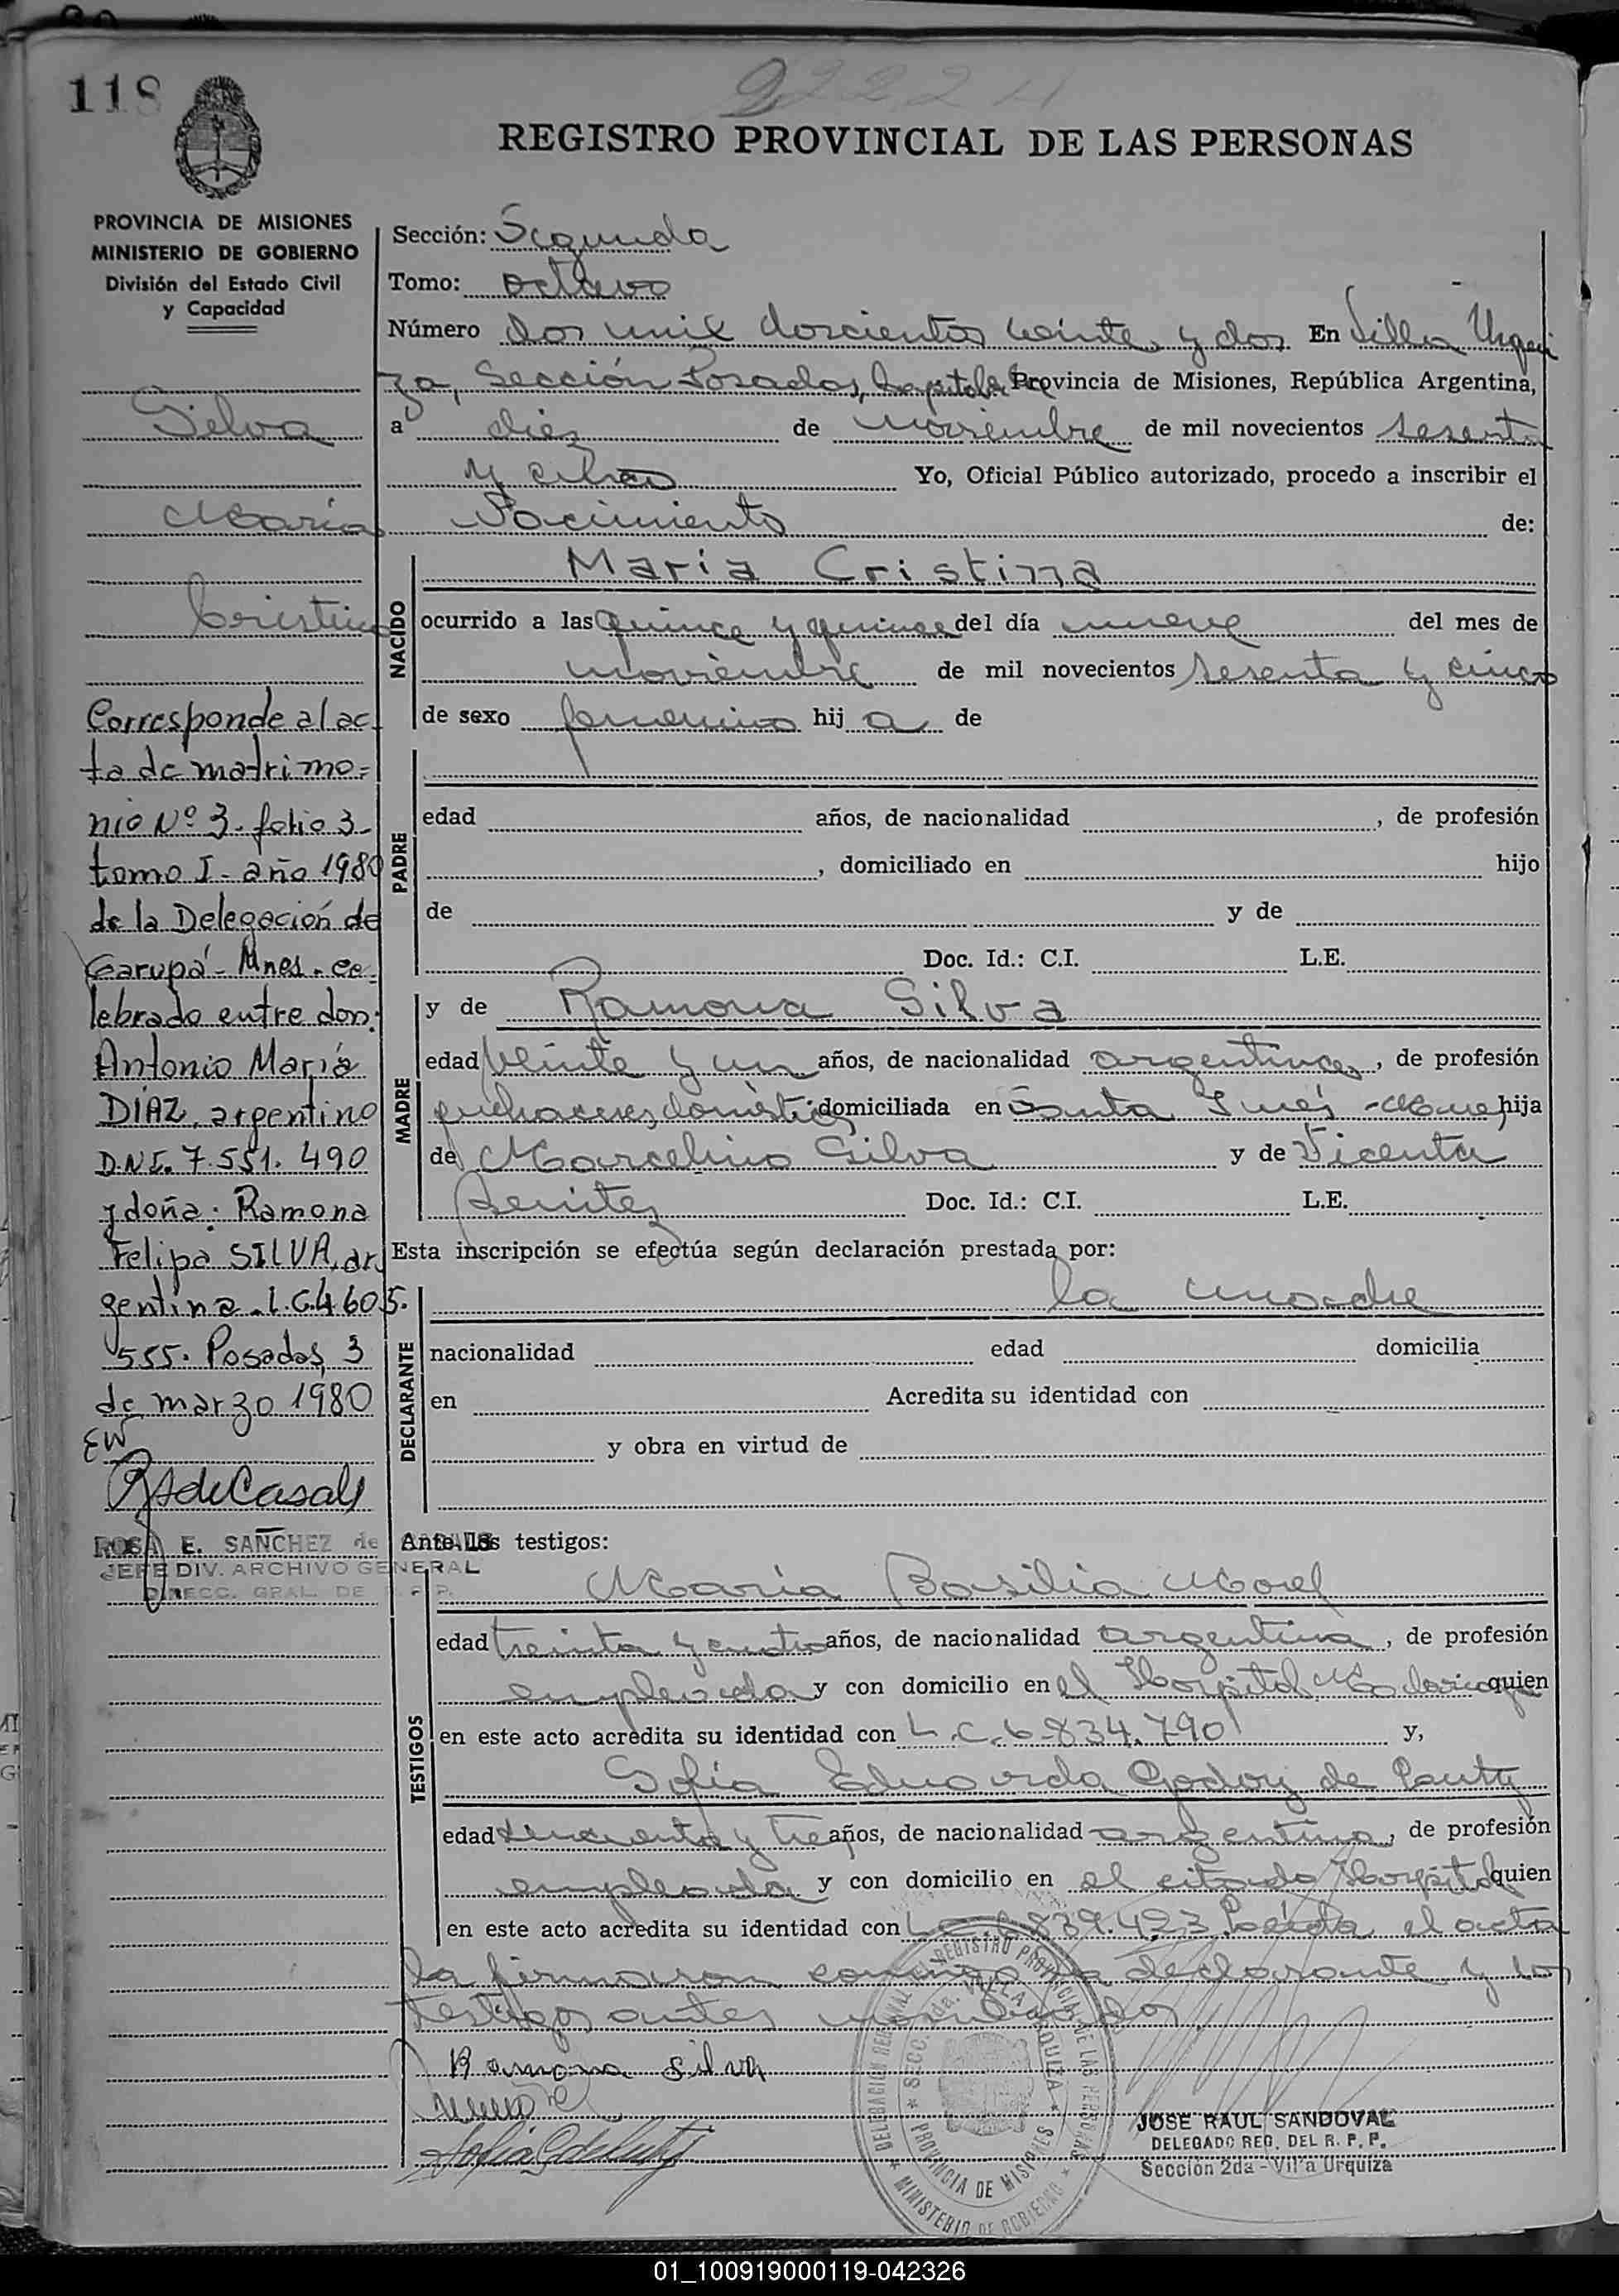 118
2222
REGISTRO PROVINCIAL DE LAS PERSONAS
PROVINCIA DE MISIONES
MINISTERIO DE GOBIERNO
División del Estado Civil
y Capacidad
Silva
María
Cristina
Corresponde al ac-
ta de matrimo-
nio Nº 3. folio 3-
tomo I- año 1980
de la Delegación de
Garupá- Mnes. ce-
lebrado entre don:
Antonio María
DÍAZ, argentino
D.N.I. 7.551.490
y doña: Ramona
Felipa SILVA, ar-
gentina. L.C. 4.605.
555. Posadas, 3
de marzo 1980
EW
ROSA E. SANCHEZ de CASALS
JEFE DIV. ARCHIVO GENERAL
DIRECC. GRAL. DE R. P. P.
Sección: Segunda
Tomo: octavo
Número dos mil doscientos veinte y dos En Villa Urqui
za, Sección Posadas, Capital de la Provincia de Misiones, República Argentina,
a diez de noviembre de mil novecientos sesenta
y cinco Yo, Oficial Público autorizado, procedo a inscribir el
Nacimiento de:
NACIDO
María Cristina
ocurrido a las quince y quince del día nueve del mes de
noviembre de mil novecientos sesenta y cinco
de sexo femenino hija de
PADRE
edad años, de nacionalidad , de profesión
, domiciliado en hijo
de y de
Doc. Id.: C.I. L.E.
MADRE
y de Ramona Silva
edad veinte y un años, de nacionalidad argentina, de profesión
quehaceres domésticos domiciliada en Santa Inés - hija
de Marcelino Silva y de Vicenta
Benitez Doc. Id.: C.I. L.E.
Esta inscripción se efectúa según declaración prestada por:
DECLARANTE
la madre
nacionalidad edad domicilia
en Acredita su identidad con
y obra en virtud de
Ante los testigos:
TESTIGOS
María Basilia Morel
edad treinta y cuatro años, de nacionalidad argentina, de profesión
empleada y con domicilio en el Hospital Madariaga quien
en este acto acredita su identidad con L.C. 6.834.790 y,
Sofía Eduarda Godoy de
edad cincuenta y tres años, de nacionalidad argentina, de profesión
empleada y con domicilio en el citado Hospital quien
en este acto acredita su identidad con L.C. 6.839.423. Leída el acta
la firmaron conmigo la declarante y los
testigos antes nombrados
Ramona Silva
DELEGACION REGIONAL REGISTRO PROVINCIAL DE LAS PERSONAS
SECC. 2da. VILLA URQUIZA
PROVINCIA DE MISIONES
MINISTERIO DE GOBIERNO
JOSE RAUL SANDOVAL
DELEGADO REG. DEL R. P. P.
Sección 2da - Villa Urquiza
01_100919000119-042326